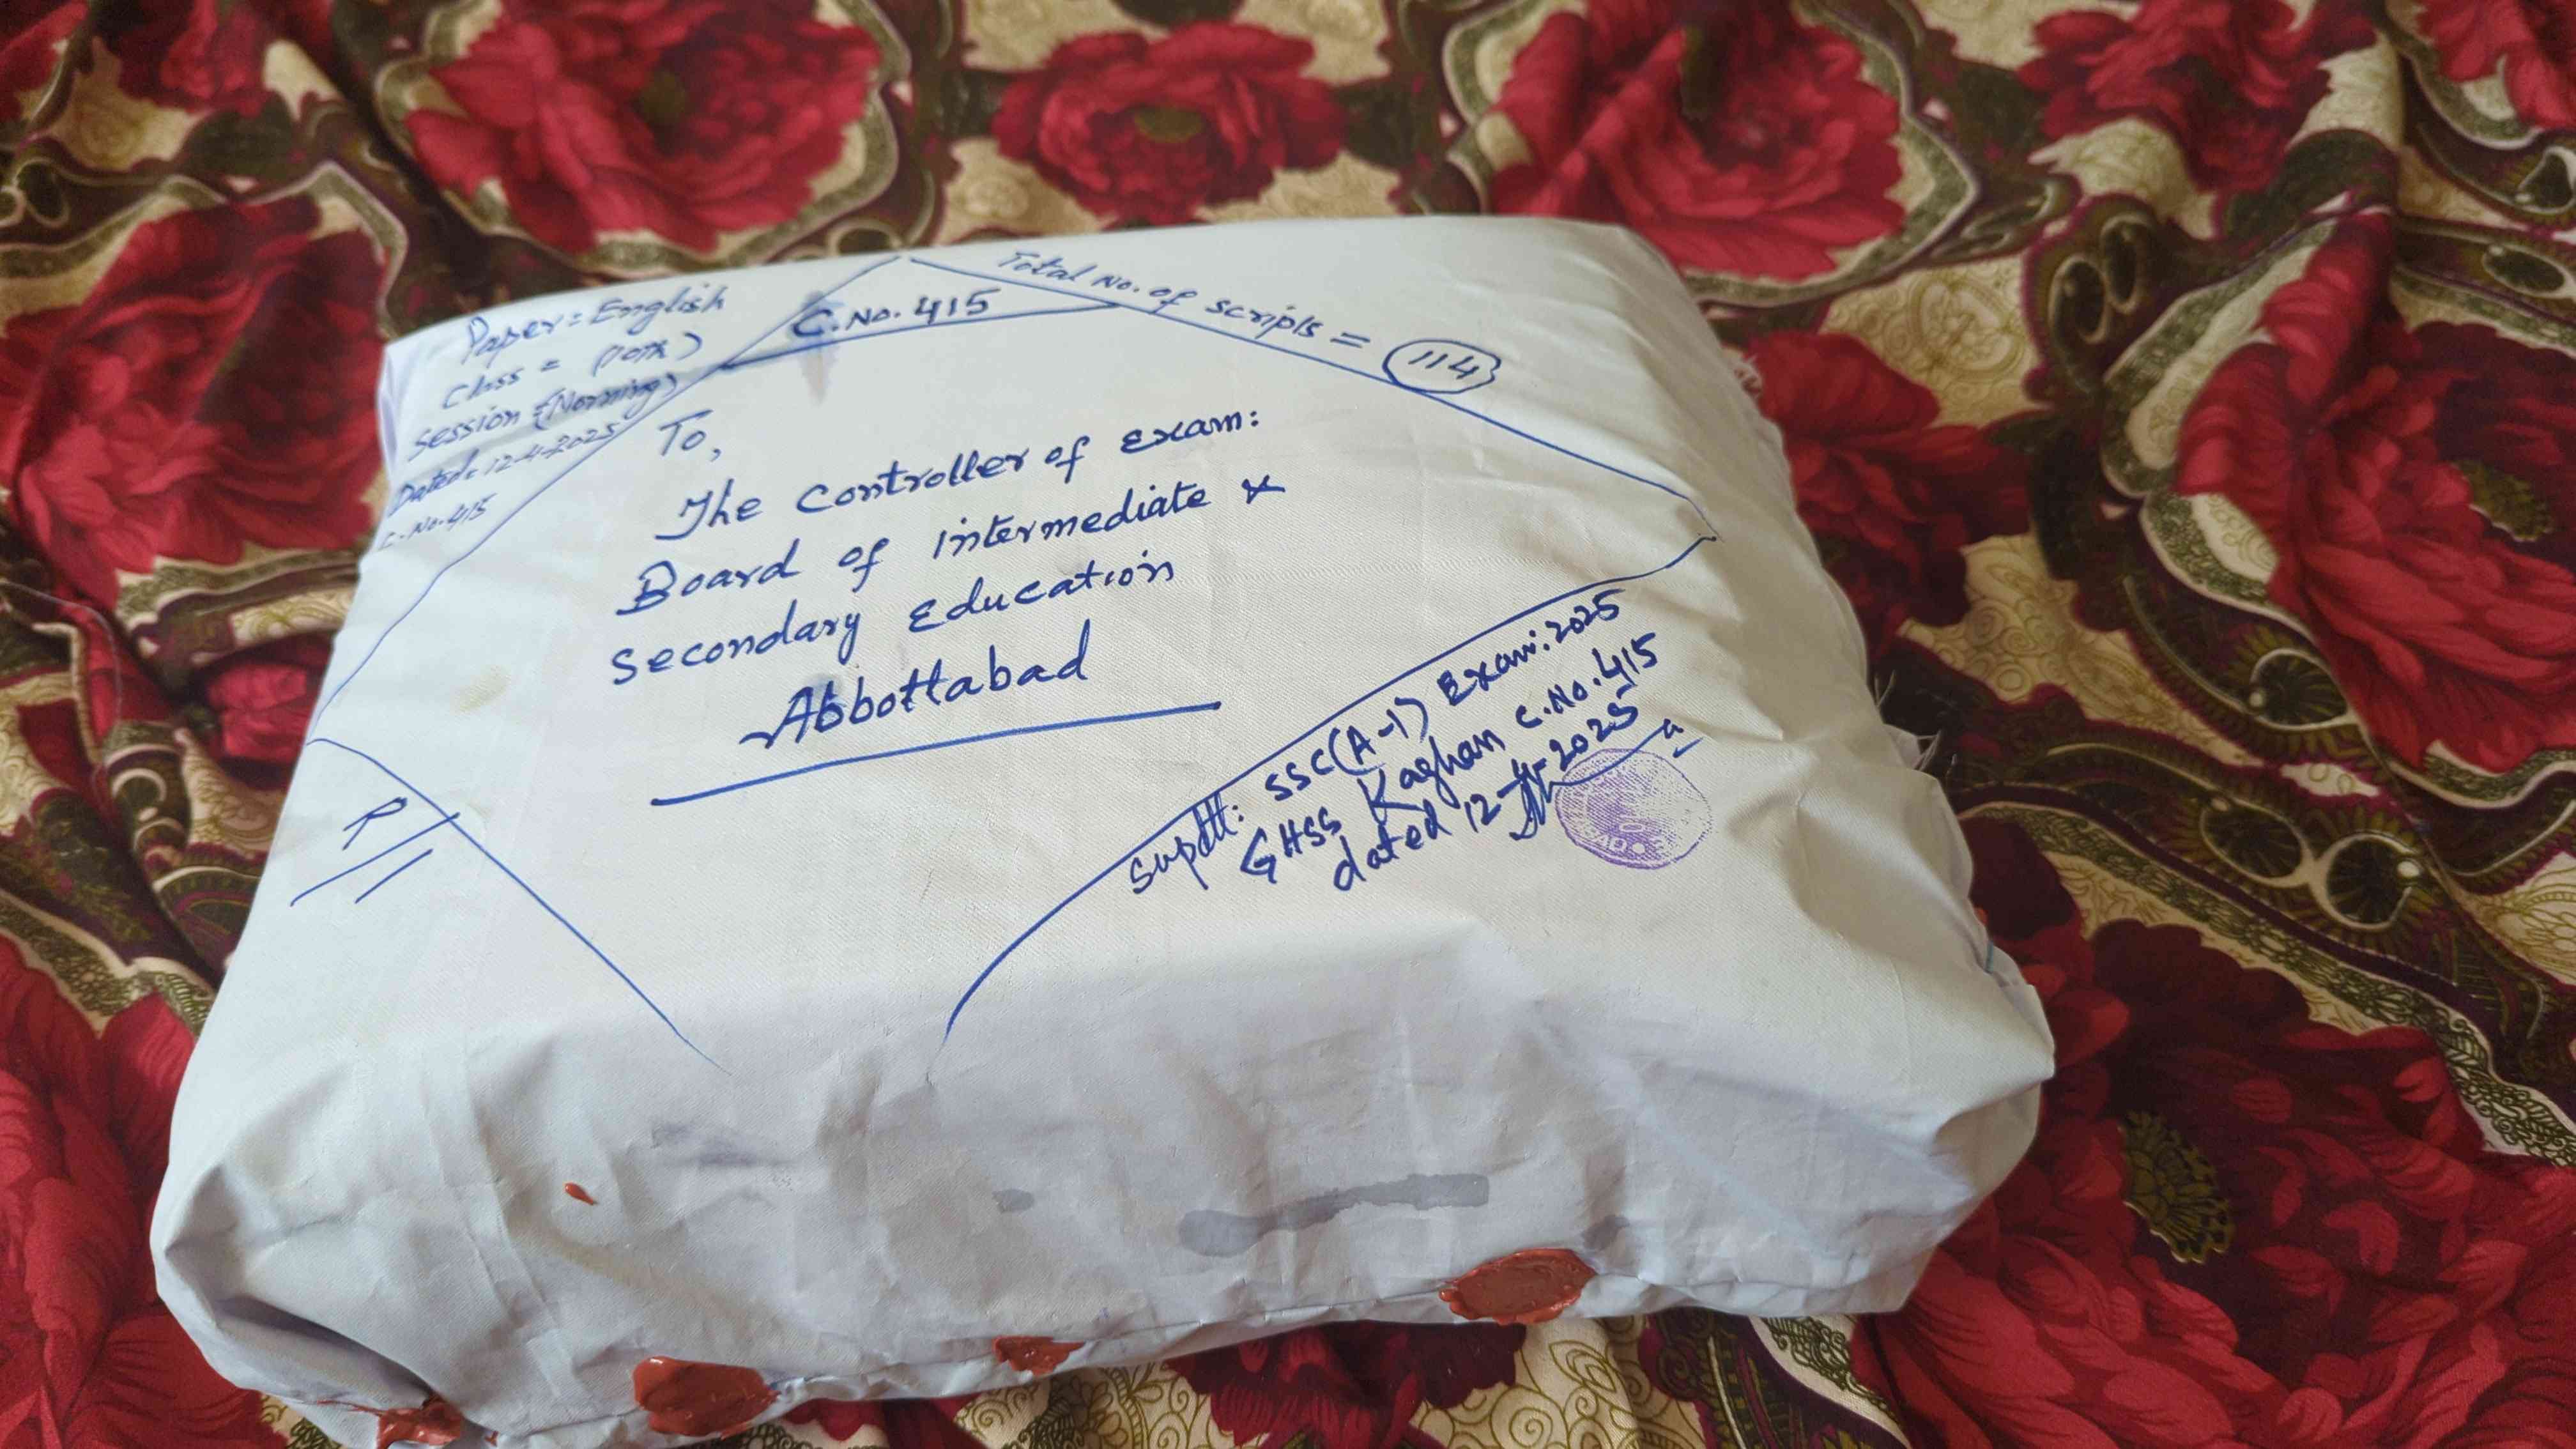 Paper = English
Class = (10th)
Session = (Morning)
Dated = 12-4-2025
C. No. 415
C. No. 415
Total No. of scripts = 114
To,
The Controller of Exam:
Board of Intermediate &
Secondary Education
Abbottabad
R
Supdtt: SSC(A-1) Exam: 2025
GHSS Kaghan C. No. 415
dated 12-4-2025